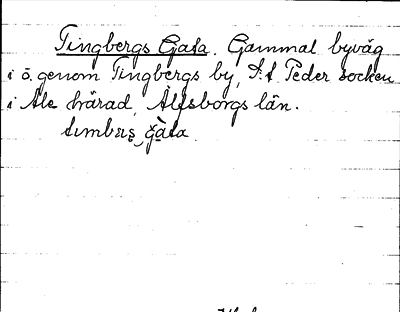 Tingbergs Gata. Gammal byväg
i ö. genom Tingbergs by, S:t Peder socken
i Ale härad, Älfsborgs län.
gata